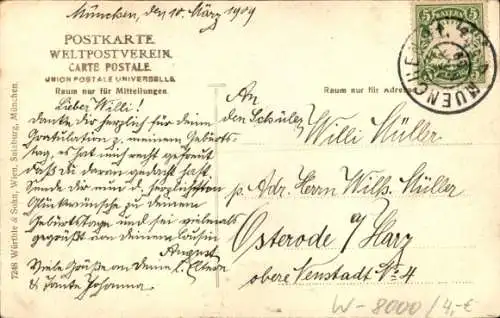 München, den 10. März 1909
POSTKARTE
WELTPOSTVEREIN
CARTE POSTALE.
UNION POSTALE UNIVERSELLE
Raum nur für Mitteilungen.
Raum nur für Adresse.
5 BAYERN 5
MUENCHEN
7248 Würthle & Sohn, Wien, Salzburg, München.
Lieber Willi!
Danke dir herzlich für deine
Gratulation z. meinem Geburts-
tag, es hat mich recht gefreut
daß du daran gedacht hast.
Sende dir nun d. herzlichsten
Glückwünsche zu deinem
Geburtstage und sei vielmals
gegrüßt von deinem Cousin
August
Viele Grüße an deine l. Eltern
& Tante Johanna.
An
den Schüler
Willi Müller
p. Adr. Herrn Wilh. Müller
Osterode a/Harz
obere Neustadt No 4
W-8000/4,-€